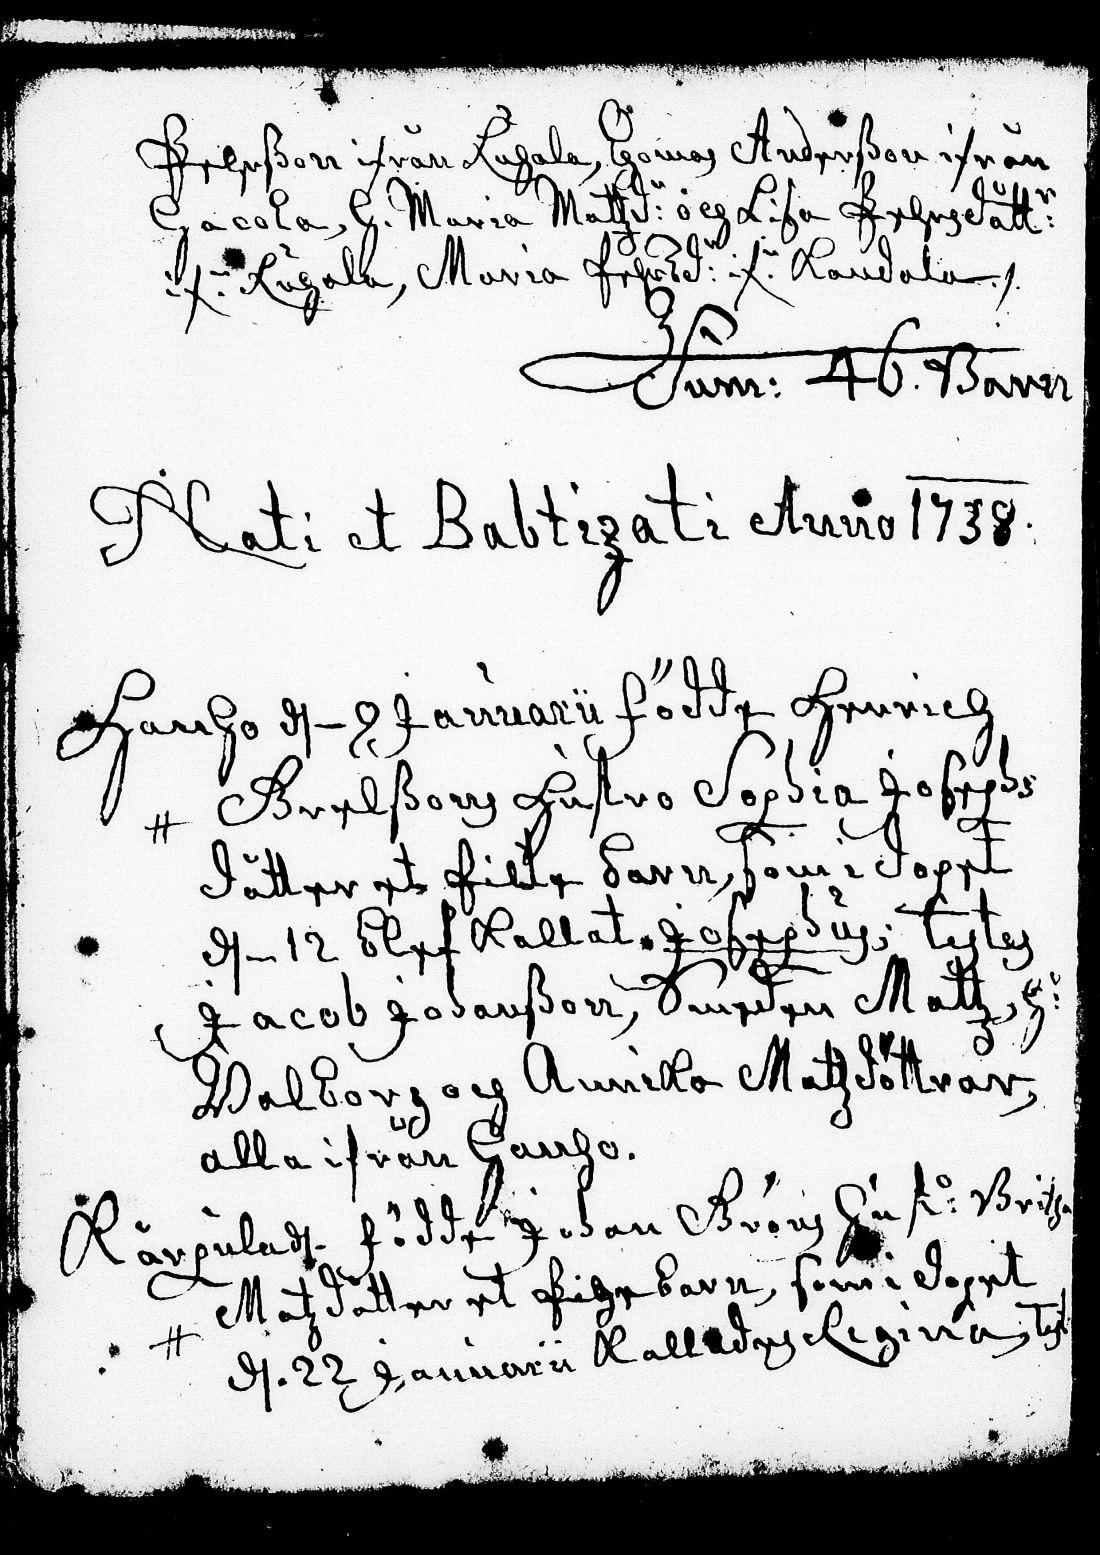 Pehrßon ifrån Kugala, Thomas Anderßon ifrån
Hacola, H. Maria Mattzd: och Lisa Pehrsdått:
if: Kugala, Maria Pehrsd: if: Kandola./.
Sum: 46. Barn
Nati et Babtizati Anno 1738.
Hanho d— 9 Januarii födde Henrich
Brelßons hustro Sophia Josephs
dåtter et Barn, som i dopet
d— 12 blef kallat Josephus; testes
Jacob Johanßon, Smeden Matz, H:
Walborg och Annika Matzdöttrar,
alla ifrån Hanho.
Kärpula d— födde Johan Bröns hust: Britha
Matzdåtter et Pigebarn, som i dopet
d. 22 Januarii kallades Regina, Test